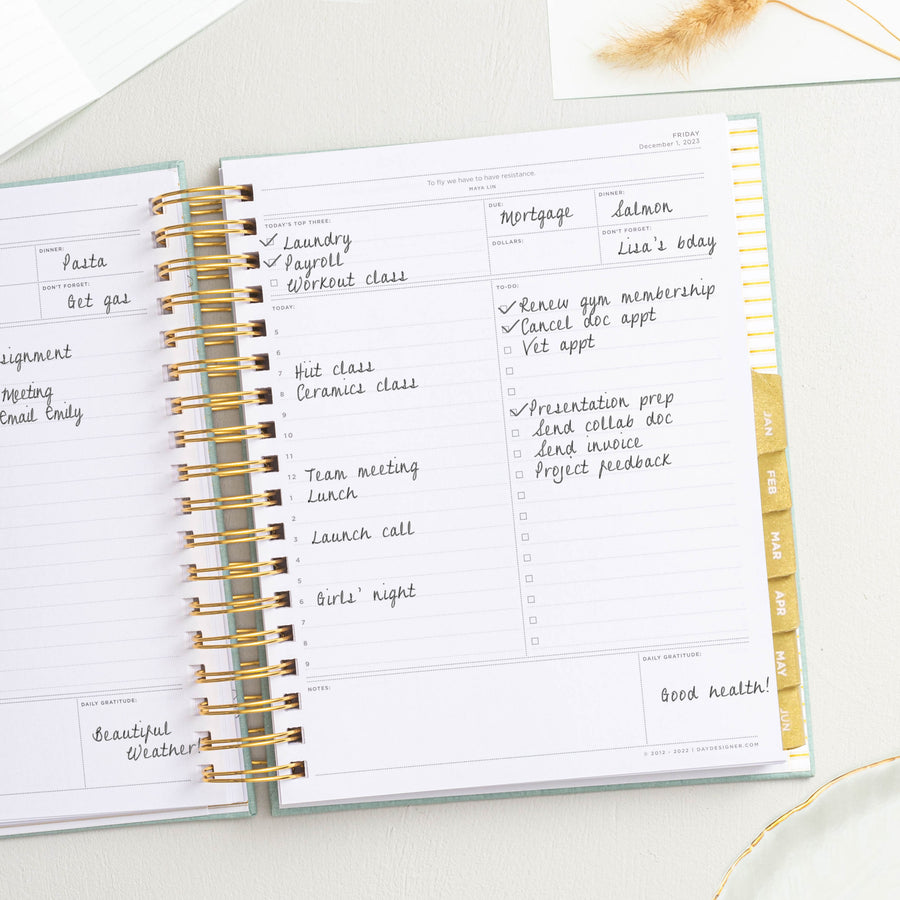 DINNER:
Pasta
DON'T FORGET:
Get gas
Meeting
Email Emily
DAILY GRATITUDE:
Beautiful
Weather!
FRIDAY
December 1, 2023
To fly we have to have resistance.
MAYA LIN
TODAY'S TOP THREE:
Laundry
Payroll
Workout class
DUE:
Mortgage
DINNER:
Salmon
DOLLARS:
DON'T FORGET:
Lisa's bday
TODAY:
5
6
7 Hiit class
8 Ceramics class
9
10
11
12 Team meeting
1 Lunch
2
3 Launch call
4
5
6 Girls' night
7
8
9
TO-DO:
Renew gym membership
Cancel doc appt
Vet appt
Presentation prep
Send collab doc
Send invoice
Project feedback
NOTES:
DAILY GRATITUDE:
Good health!
© 2012 - 2022 | DAYDESIGNER.COM
JAN
FEB
MAR
APR
MAY
JUN